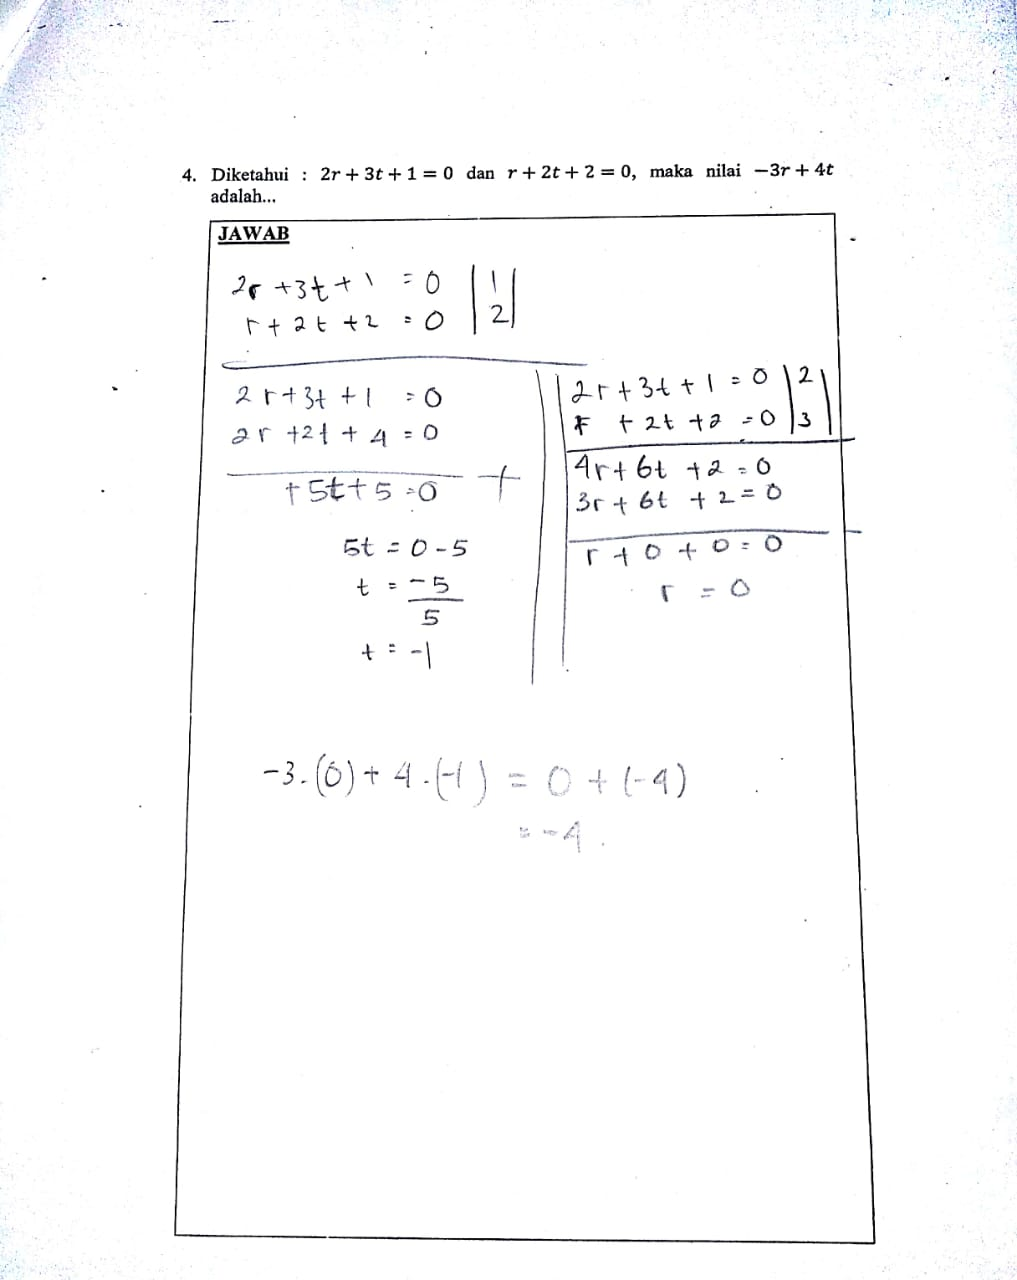 4. Diketahui : 2r + 3t + 1 = 0 dan r + 2t + 2 = 0, maka nilai −3r + 4t
adalah...
JAWAB
2r + 3t + 1 = 0 | 1 |
r + 2t + 2 = 0 | 2 |
2r + 3t + 1 = 0
2r + 2t + 4 = 0
+ 5t + 5 = 0 +
5t = 0 - 5
t = -5
5
t = -1
2r + 3t + 1 = 0 | 2 |
r + 2t + 2 = 0 | 3 |
4r + 6t + 2 = 0
3r + 6t + 2 = 0
r + 0 + 0 = 0
r = 0
-3.(0) + 4.(-1) = 0 + (-4)
= -4.